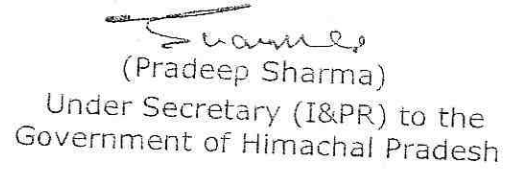 Sharma
(Pradeep Sharma)
Under Secretary (I&PR) to the
Government of Himachal Pradesh